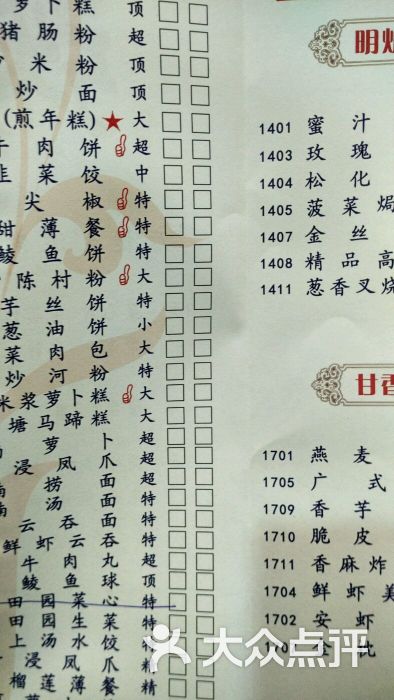 萝卜糕
猪肠粉 超
米粉 顶
炒面 顶
(煎年糕)★ 大
牛肉饼 超
韭菜饺 中
尖椒 特
甜薄餐 特
鲮鱼饼 特
陈村粉 大
芋丝饼 特
葱油饼 小
菜肉包 大
炒河粉 特
米浆萝卜糕 大
塘马蹄糕 大
萝卜 超
浸凤爪 超
捞面 特
汤面 特
云吞 特
鲜虾云吞 特
牛肉丸 超
鲮鱼球 顶
田园菜心 特
田园生菜 特
上汤水饺 特
浸凤爪 精
榴莲薄餐 精
明炉
1401 蜜汁
1403 玫瑰
1404 松化
1405 菠菜焗
1407 金丝
1408 精品高
1411 葱香叉烧
甘香
1701 燕麦
1705 广式
1709 香芋
1710 脆皮
1711 香麻炸
1704 鲜虾
1702 安虾
大众点评